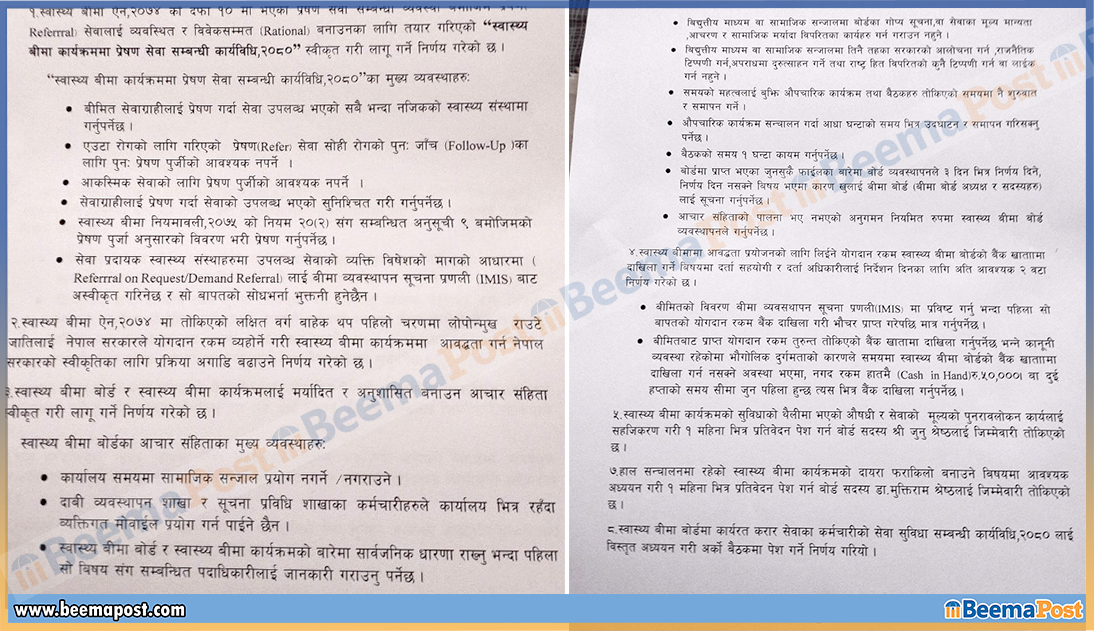 १.स्वास्थ्य बीमा ऐन,२०७४ को दफा १० मा भएको प्रेषण सेवा सम्बन्धी व्यवस्था बमोजिम प्रेषण
Referrral) सेवालाई व्यवस्थित र विवेकसम्मत (Rational) बनाउनका लागि तयार गरिएको “स्वास्थ्य
बीमा कार्यक्रममा प्रेषण सेवा सम्बन्धी कार्यविधि,२०८०” स्वीकृत गरी लागू गर्ने निर्णय गरेको छ ।
“स्वास्थ्य बीमा कार्यक्रममा प्रेषण सेवा सम्बन्धी कार्यविधि,२०८०”का मुख्य व्यवस्थाहरु:
• बीमित सेवाग्राहीलाई प्रेषण गर्दा सेवा उपलब्ध भएको सबै भन्दा नजिकको स्वास्थ्य संस्थामा
गर्नुपर्नेछ ।
• एउटा रोगको लागि गरिएको प्रेषण(Refer) सेवा सोही रोगको पुन: जाँच (Follow-Up )का
लागि पुन: प्रेषण पुर्जीको आवश्यक नपर्ने ।
• आकस्मिक सेवाको लागि प्रेषण पुर्जीको आवश्यक नपर्ने ।
• सेवाग्राहीलाई प्रेषण गर्दा सेवाको उपलब्ध भएको सुनिश्चित गरी गर्नुपर्नेछ ।
• स्वास्थ्य बीमा नियमावली,२०७५ को नियम २०(२) संग सम्बन्धित अनुसूची ९ बमोजिमको
प्रेषण पुर्जा अनुसारको विवरण भरी प्रेषण गर्नुपर्नेछ ।
• सेवा प्रदायक स्वास्थ्य संस्थाहरुमा उपलब्ध सेवाको व्यक्ति विषेशको मागको आधारमा (
Referrral on Request/Demand Referral) लाई बीमा व्यवस्थापन सूचना प्रणली (IMIS) बाट
अस्वीकृत गरिनेछ र सो बापतको सोधभर्ना भुक्तनी हुनेछैन ।
२.स्वास्थ्य बीमा ऐन,२०७४ मा तोकिएको लक्षित वर्ग वाहेक थप पहिलो चरणमा लोपोन्मुख राउटे
जातिलाई नेपाल सरकारले योगदान रकम व्यहोर्ने गरी स्वास्थ्य बीमा कार्यक्रममा आवद्धता गर्न नेपाल
सरकारको स्वीकृतिका लागि प्रक्रिया अगाडि बढाउने निर्णय गरेको छ ।
३.स्वास्थ्य बीमा बोर्ड र स्वास्थ्य बीमा कार्यक्रमलाई मर्यादित र अनुशासित बनाउन आचार संहिता
स्वीकृत गरी लागू गर्ने निर्णय गरेको छ ।
स्वास्थ्य बीमा बोर्डका आचार संहिताका मुख्य व्यवस्थाहरु:
• कार्यालय समयमा सामाजिक सन्जाल प्रयोग नगर्ने /नगराउने ।
• दाबी व्यवस्थापन शाखा र सूचना प्रविधि शाखाका कर्मचारीहरुले कार्यालय भित्र रहँदा
व्यक्तिगत मोवाईल प्रयोग गर्न पाईने छैन ।
• स्वास्थ्य बीमा बोर्ड र स्वास्थ्य बीमा कार्यक्रमको बारेमा सार्वजनिक धारणा राख्नु भन्दा पहिला
सो विषय संग सम्बन्धित पदाधिकारीलाई जानकारी गराउनु पर्नेछ ।
• विद्युत्तीय माध्यम वा सामाजिक सन्जालमा बोर्डका गोप्य सूचना,वा सेवाका मूल्य मान्यता
,आचरण र सामाजिक मर्यादा विपरितका कार्यहरु गर्न गराउन नहुने ।
• विद्युत्तीय माध्यम वा सामाजिक सन्जालमा तिनै तहका सरकारको आलोचना गर्न ,राजनैतिक
टिप्पणी गर्न,अपराधमा दुरुत्साहन गर्ने तथा राष्ट्र हित विपरितको कुनै टिप्पणी गर्न वा लाईक
गर्न नहुने ।
• समयको महत्वलाई बुझि औपचारिक कार्यक्रम तथा बैठकहरु तोकिएको समयमा नै शुरुवात
र समापन गर्ने ।
• औपचारिक कार्यक्रम सन्चालन गर्दा आधा घन्टाको समय भित्र उदघाटन र समापन गरिसक्नु
पर्नेछ ।
• बैठकको समय १ घन्टा कायम गर्नुपर्नेछ ।
• बोर्डमा प्राप्त भएका जुनसुकै फाईलका बारेमा बोर्ड व्यवस्थापनले ३ दिन भित्र निर्णय दिने,
निर्णय दिन नसक्ने बिषय भएमा कारण खुलाई बीमा बोर्ड (बीमा बोर्ड अध्यक्ष र सदस्यहरु)
लाई सूचना गर्नुपर्नेछ ।
• आचार संहिताको पालना भए नभएको अनुगमन नियमित रुपमा स्वास्थ्य बीमा बोर्ड
व्यवस्थापनले गर्नुपर्नेछ ।
४.स्वास्थ्य बीमामा आवद्धता प्रयोजनको लागि लिईने योगदान रकम स्वास्थ्य बीमा बोर्डको बैंक खातामा
दाखिला गर्ने बिषयमा दर्ता सहयोगी र दर्ता अधिकारीलाई निर्देशन दिनका लागि अति आवश्यक २ वटा
निर्णय गरेको छ ।
• बीमितको विवरण बीमा व्यवस्थापन सूचना प्रणली(IMIS) मा प्रविष्ट गर्नु भन्दा पहिला सो
बापतको योगदान रकम बैंक दाखिला गरी भौचर प्राप्त गरेपछि मात्र गर्नुपर्नेछ ।
• बीमितबाट प्राप्त योगदान रकम तुरुन्त तोकिएको बैंक खातामा दाखिला गर्नुपर्नेछ भन्ने कानूनी
व्यवस्था रहेकोमा भौगोलिक दुर्गमताको कारणले समयमा स्वास्थ्य बीमा बोर्डको बैंक खातामा
दाखिला गर्न नसक्ने अवस्था भएमा, नगद रकम हातमै (Cash in Hand)रु.५०,०००। वा दुई
हप्ताको समय सीमा जुन पहिला हुन्छ त्यस भित्र बैंक दाखिला गर्नुपर्नेछ ।
५.स्वास्थ्य बीमा कार्यक्रमको सुविधाको थैलीमा भएको औषधी र सेवाको मूल्यको पुनरावलोकन कार्यलाई
सहजिकरण गरी १ महिना भित्र प्रतिवेदन पेश गर्न बोर्ड सदस्य श्री जुनु श्रेष्ठलाई जिम्मेवारी तोकिएको
छ ।
७.हाल सन्चालनमा रहेको स्वास्थ्य बीमा कार्यक्रमको दायरा फराकिलो बनाउने बिषयमा आवश्यक
अध्ययन गरी १ महिना भित्र प्रतिवेदन पेश गर्न बोर्ड सदस्य डा.मुक्तिराम श्रेष्ठलाई जिम्मेवारी तोकिएको
छ ।
८.स्वास्थ्य बीमा बोर्डमा कार्यरत करार सेवाका कर्मचारीको सेवा सुविधा सम्बन्धी कार्यविधि,२०८० लाई
बिस्तृत अध्ययन गरी अर्को बैठकमा पेश गर्ने निर्णय गरियो ।
www.beemapost.com
BeemaPost